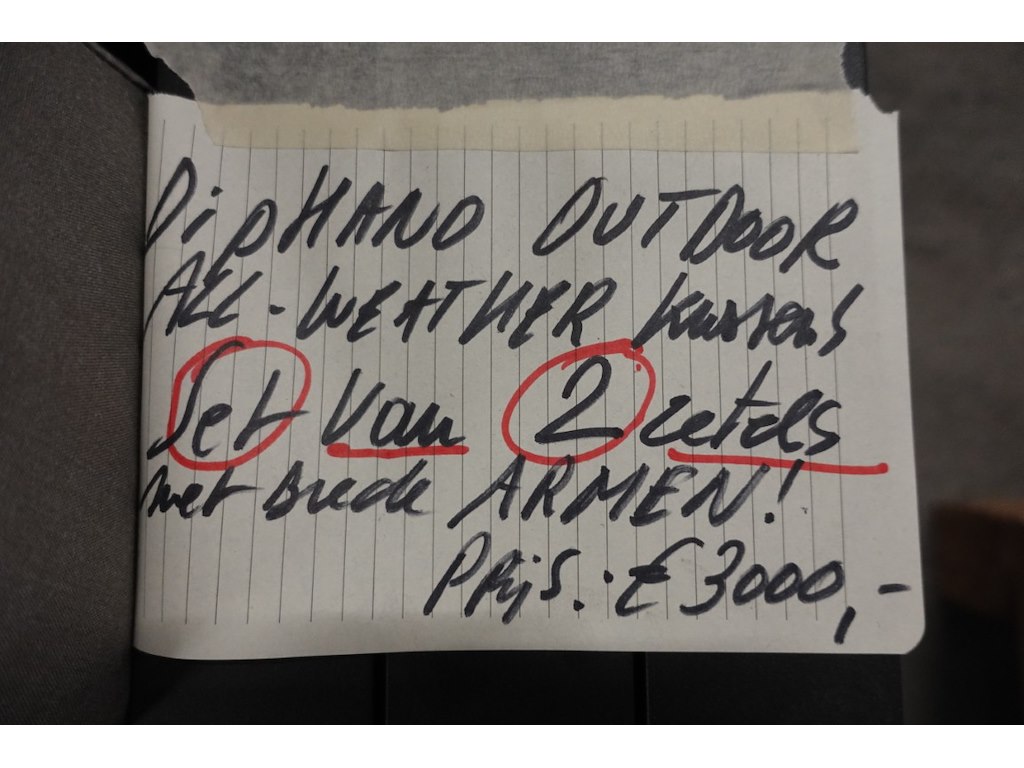 DipHAND OUTDOOR
ALL-WEATHER kussens
Set Van 2 zetels
met Brede ARMEN!
Prijs: € 3000,-